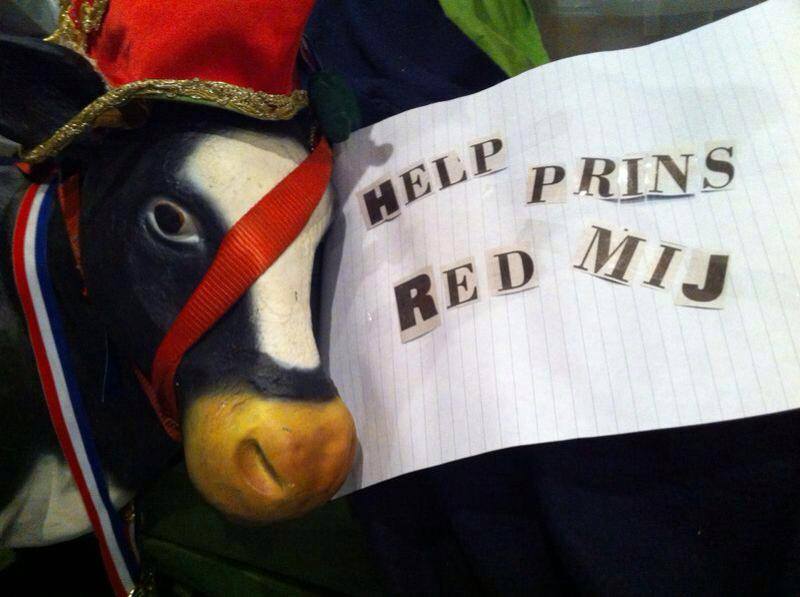 HELP PRINS
RED MIJ